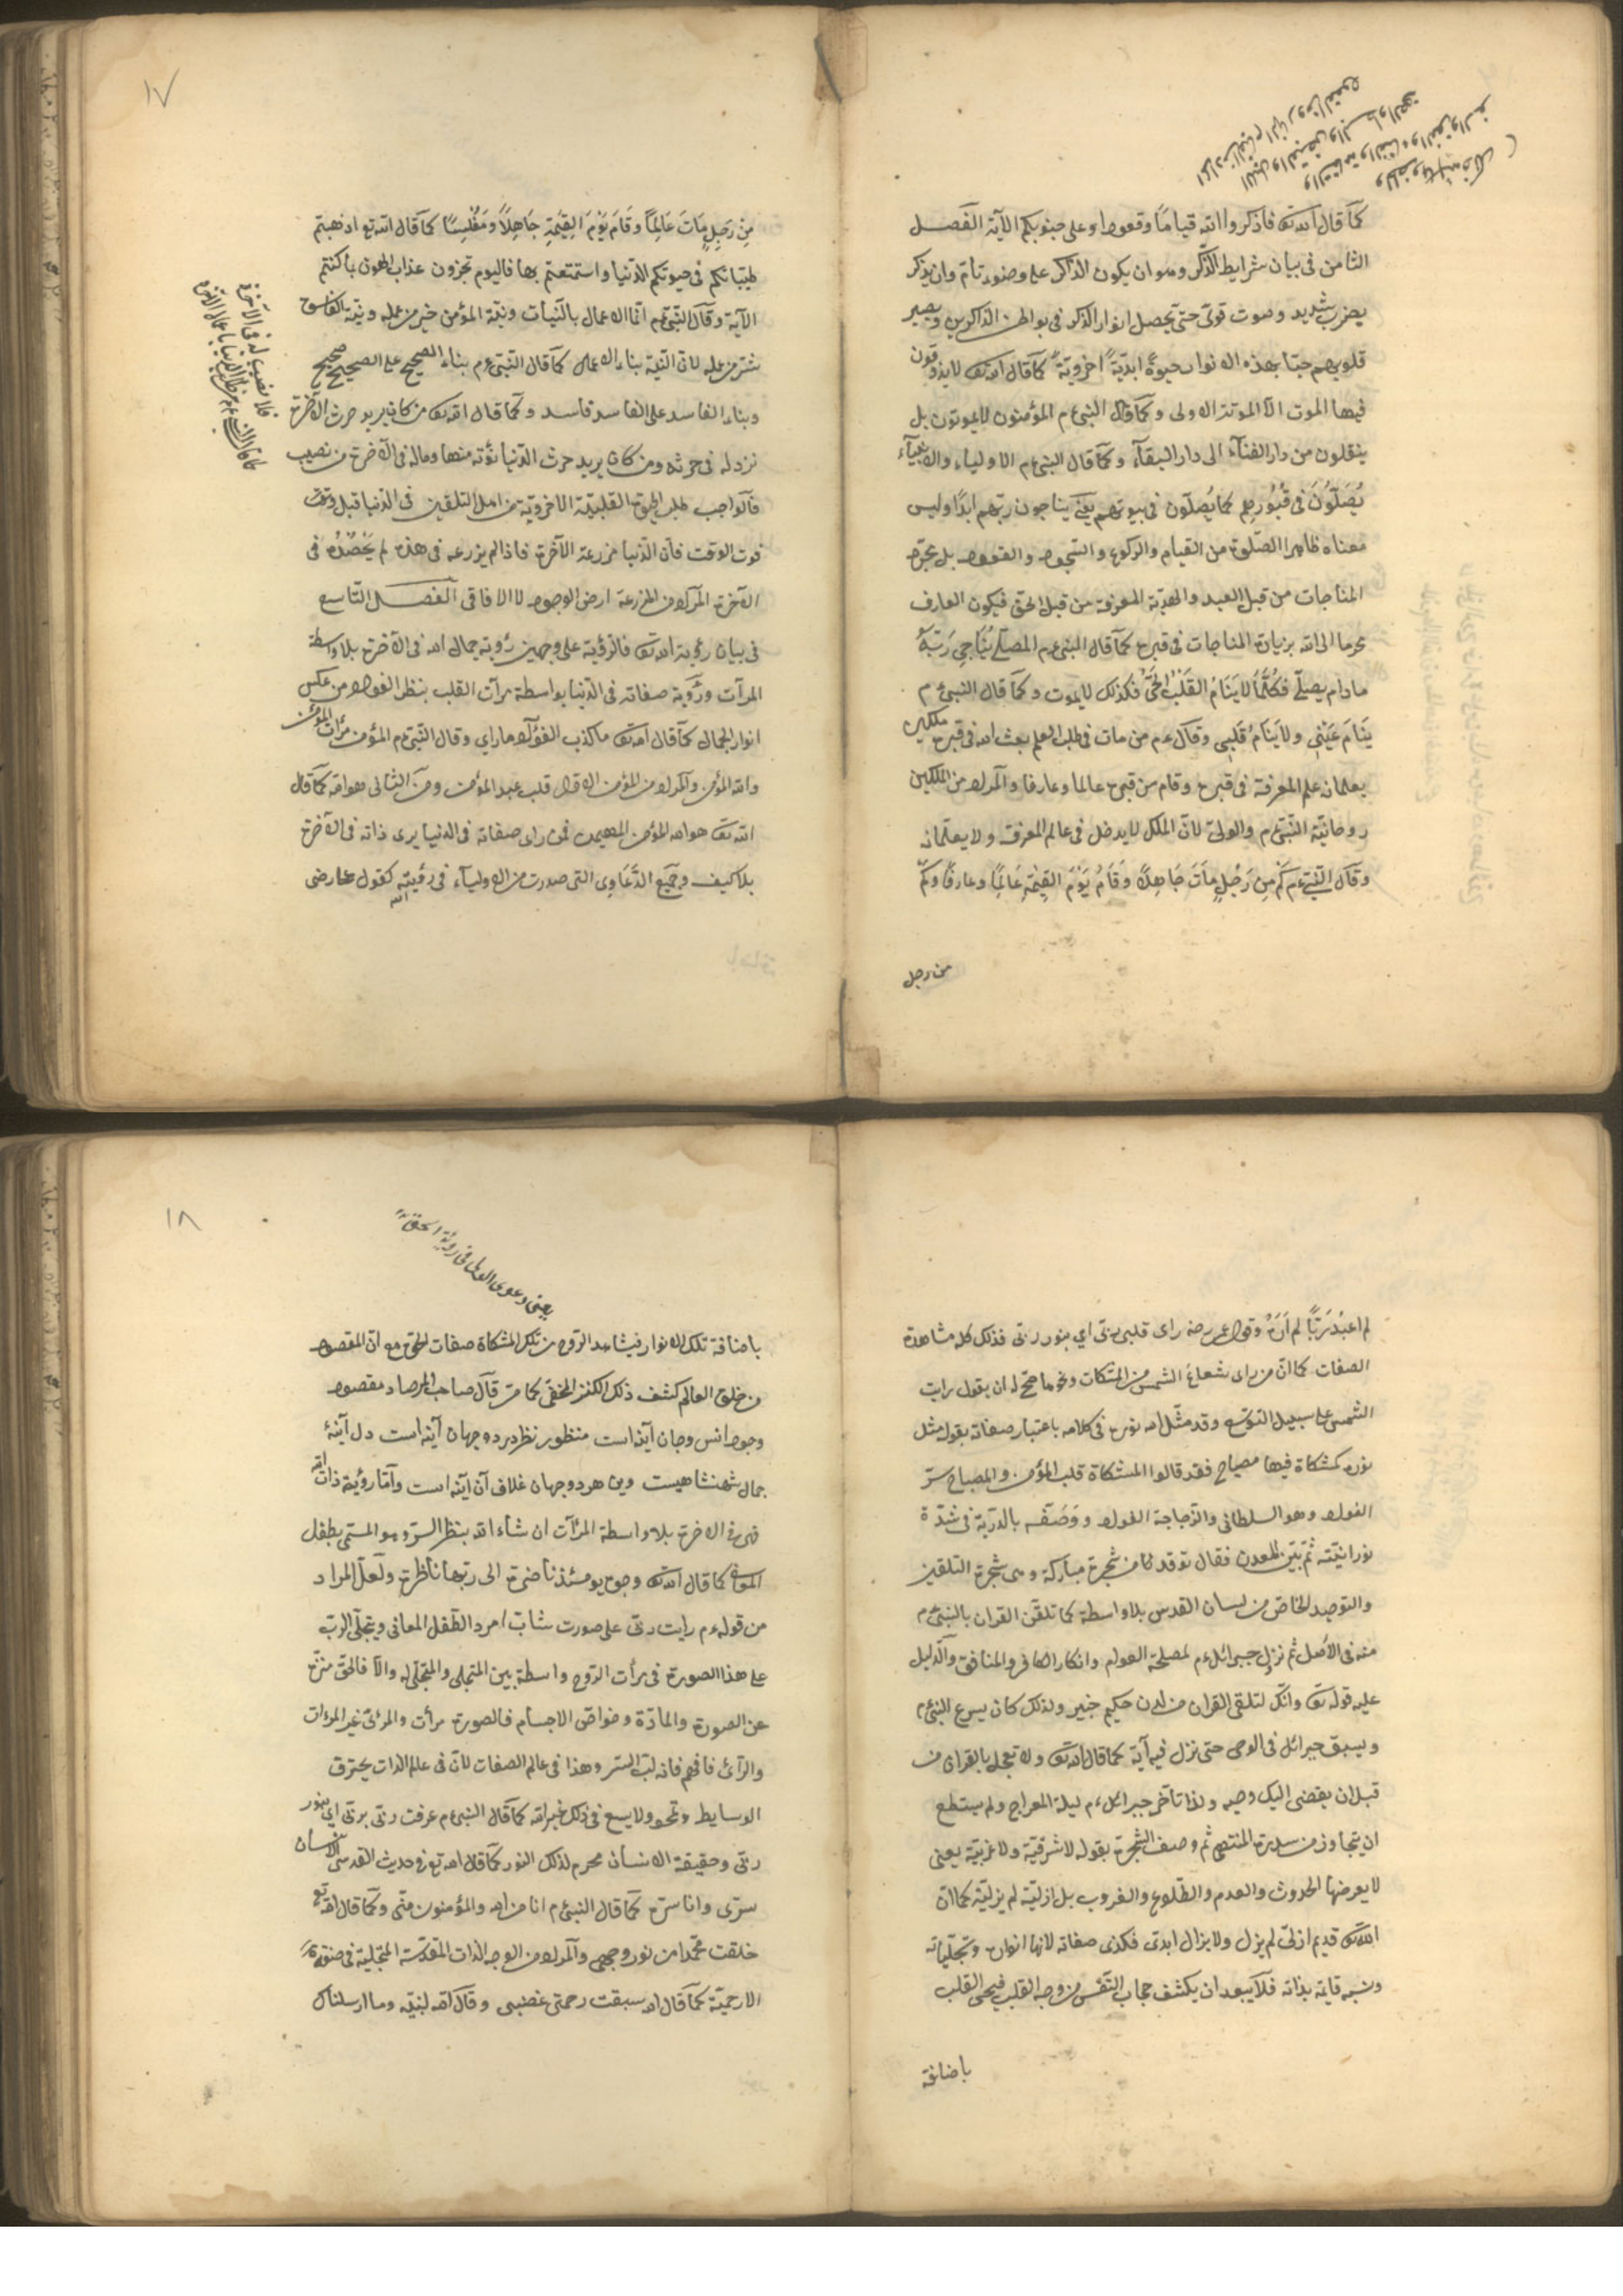 كما قال الله تع فاذكروا الله قياما وقعودا وعلى جنوبكم الآية الفصل
الثامن فى بيان شرايط الذكر وهو ان يكون الذاكر على وضوء تام وان يذكر
بضرب شديد وصوت قوى حتى يحصل انوار الذكر فى بواطن الذاكرين ويصير
قلوبهم حيا بهذه الانوار حيوة ابدية اخروية كما قال الله تع لايذوقون
فيها الموت الا الموتة الاولى وكما قال النبى ءم المؤمنون لايموتون بل
ينقلون من دار الفناء الى دار البقاء وكما قال النبى ءم الاولياء والانبياء
يُصَلّونَ فى قُبُورِهِم كما يُصلّون فى بيوتهم يعنى يناجون ربهم ابدا وليس
معناه ظاهرا الصلوة من القيام والركوع والسجود والقعود بل مجرد
المناجات من قبل العبد والهدية المعرفة من قبل الحق فيكون العارف
محرما الى الله بزيادة المناجات فى قبره كما قال النبى ءم المصلّى يُنَاجِى رَبَّهُ
مادام يصلّى فكلّمَا لايَنَامُ القَلْبُ الحَىُّ فكذلك لايموت وكما قال النبى ءم
يَنَامُ عَيْنِى ولا يَنَامُ قَلبِى وقال ءم من مات فى طلب العلم بعث الله فى قبره ملكين
يعلمانه علم المعرفة فى قبره وقام من قبره عالما وعارفا والمراد من الملكين
روحانية النبى ءم والولى لان الملك لايدخل فى عالم المعرفة ولا يعلمانه
وقال النبى ءم كَمْ مِن رَجُلٍ مَاتَ جَاهِلًا وَقَامَ يَوْمَ القِيٰمَةِ عَالِمًا وعارفًا وكم
من رجل
١٧
مِن رَجِلٍ مَاتَ عَالِمًا وقَامَ يَوْمَ القِيٰمَةِ جَاهِلًا ومَفْلِسًا كما قال الله تع اذهبتم
طيباتكم فى حيوتكم الدنيا واستمتعتم بها فاليوم تجزون عذاب الهون بما كنتم
الآية وقال النبى ءم انما الاعمال بالنيات ونية المؤمن خير من عمله ونية الفاسق
شر من عمله لان النية بناء الاعمال كما قال النبى ءم بناء الصحيح على الصحيح صحيح
وبناء الفاسد على الفاسد فاسد وكما قال الله تع من كان يريد حرث الآخرة
نزد له فى حرثه ومن كان يريد حرث الدنيا نؤته منها وماله فى الآخرة من نصيب
فالواجب طلب الحيوة القلبية الاخروية من اهل التلقين فى الدنيا قبل وقت
فوت الوقت فان الدنيا مزرعة الآخرة فاذا لم يزرعه فى هذه لم يَحْصُدْهُ فى
الآخرة المراد من المزرعة ارض الوجود لا الافاقى الفصل التاسع
فى بيان رؤية الله تع فالرؤية على وجهين رؤية جمال الله فى الآخرة بلا واسطة
المرآت ورؤية صفاته فى الدنيا بواسطة مرآت القلب بنظر الفؤاد من عكس
انوار الجمال كما قال الله تع ما كذب الفؤاد ماراى وقال النبى ءم المؤمن مرآت المؤمن
والله المؤمن والمراد من المؤمن الاول قلب عبد المؤمن ومن الثانى هو الله كما قال
الله تع هو الله المؤمن المهيمن فمن راى صفاته فى الدنيا يرى ذاته فى الآخرة
بلا كيف وجميع الدَّعَاوِى التى صدرت من الاولياء فى رؤيته الله كقول عمر رضى
كما قال النبى ءم من طلب الدنيا باعمال الاخرة
فلا نصيب له فى الآخرة
لم اعبدْ رَبًّا لم اَرَهُ وقول عمر رضه راى قلبى ربى اى بنور ربى فذلك كله مشاهدة
الصفات كما ان من راى شعاع الشمس من المشكات ونحوها صح له ان يقول رايت
الشمس على سبيل التوسع وقد مثّل الله نوره فى كلامه باعتبار صفاته بقوله مثل
نوره كمشكاة فيها مصباح فقد قالوا المشكاة قلب المؤمن والمصباح سر
الفؤاد وهو السلطانى والزجاجة الفؤاد ووَصَفَه بالدرية فى شدة
نورانيته ثم بين المعدن فقال توقد من شجرة مباركة وهى شجرة التلقين
والتوحيد الخاص من لسان القدس بلا واسطة كما تلقن القران بالنبى ءم
منه فى الاصل ثم نزل جبرائل ءم لمصلحة العوام وانكار الكافر والمنافق والدليل
عليه قوله تع وانك لتلقى القران من لدن حكيم خبير ولذلك كان يسرع النبى ءم
ويسبق جبرائل فى الوحى حتى نزل فيه آية كما قال الله تع ولا تعجل بالقران من
قبل ان يقضى اليك وحيه ولذا تأخر جبرائل ءم ليلة المعراج ولم يستطع
ان يتجاوز من سدرة المنتهى ثم وصف الشجرة بقوله لا شرقية ولا غربية يعنى
لا يعرضها الحدوث والعدم والطلوع والغروب بل ازلية لم يزلية كما ان
الله تع قديم ازلى لم يزل ولايزال ابدى فكذى صفاته لانها انواره وتجلياته
ونسبه قايمة بذاته فلا يبعد ان يكشف حجاب النفس من وجه القلب فيحيى القلب
باضافة
١٨
يعنى دعوى الاوليا فى رؤية الحق
باضافة تلك الانوار فيشاهد الروح من تلك المشكاة صفات الحق مع ان المقصود
من خلق العالم كشف ذلك الكنز المخفى كما مر قال صاحب المرصاد مقصود
وجود انس وجان آينه است منظور نظر در دو جهان آينه است دل آينهٔ
جمال شهنشاهيست وين هر دو جهان غلاف آن آينه است واما رؤية ذات الله
فهى فى الاخرة بلا واسطة المرآت ان شاء الله بنظر السر وهو المسمى بطفل
المعانى كما قال الله تع وجوه يومئذ ناضرة الى ربها ناظرة ولعل المراد
من قوله ءم رايت ربى على صورت شاب امرد الطفل المعانى وتجلى الرب
على هذا الصورة فى مرأت الروح واسطة بين المتجلى والمتجلى له والا فالحق منزه
عن الصورة والمادة وخواص الاجسام فالصورة مرأت والمرئى غير المرءات
والرائ فافهم فانه لب السر وهذا فى عالم الصفات لان فى عالم الذات يحترق
الوسايط وتمحو ولايسع فى ذلك غير الله كما قال النبى ءم عرفت ربى بربى اى بنور
ربى وحقيقة الانسان محرم لذلك النور كما قال الله تع فى حديث القدسى الانسان
سرى وانا سره كما قال النبى ءم انا من الله والمؤمنون منى وكما قال الله تع
خلقت محمدا من نور وجهى والمراد من الوجه الذات المقدسة المتجلية فى صفة
الارحمية كما قال الله سبقت رحمتى غضبى وقال الله لنبيه وما ارسلناك